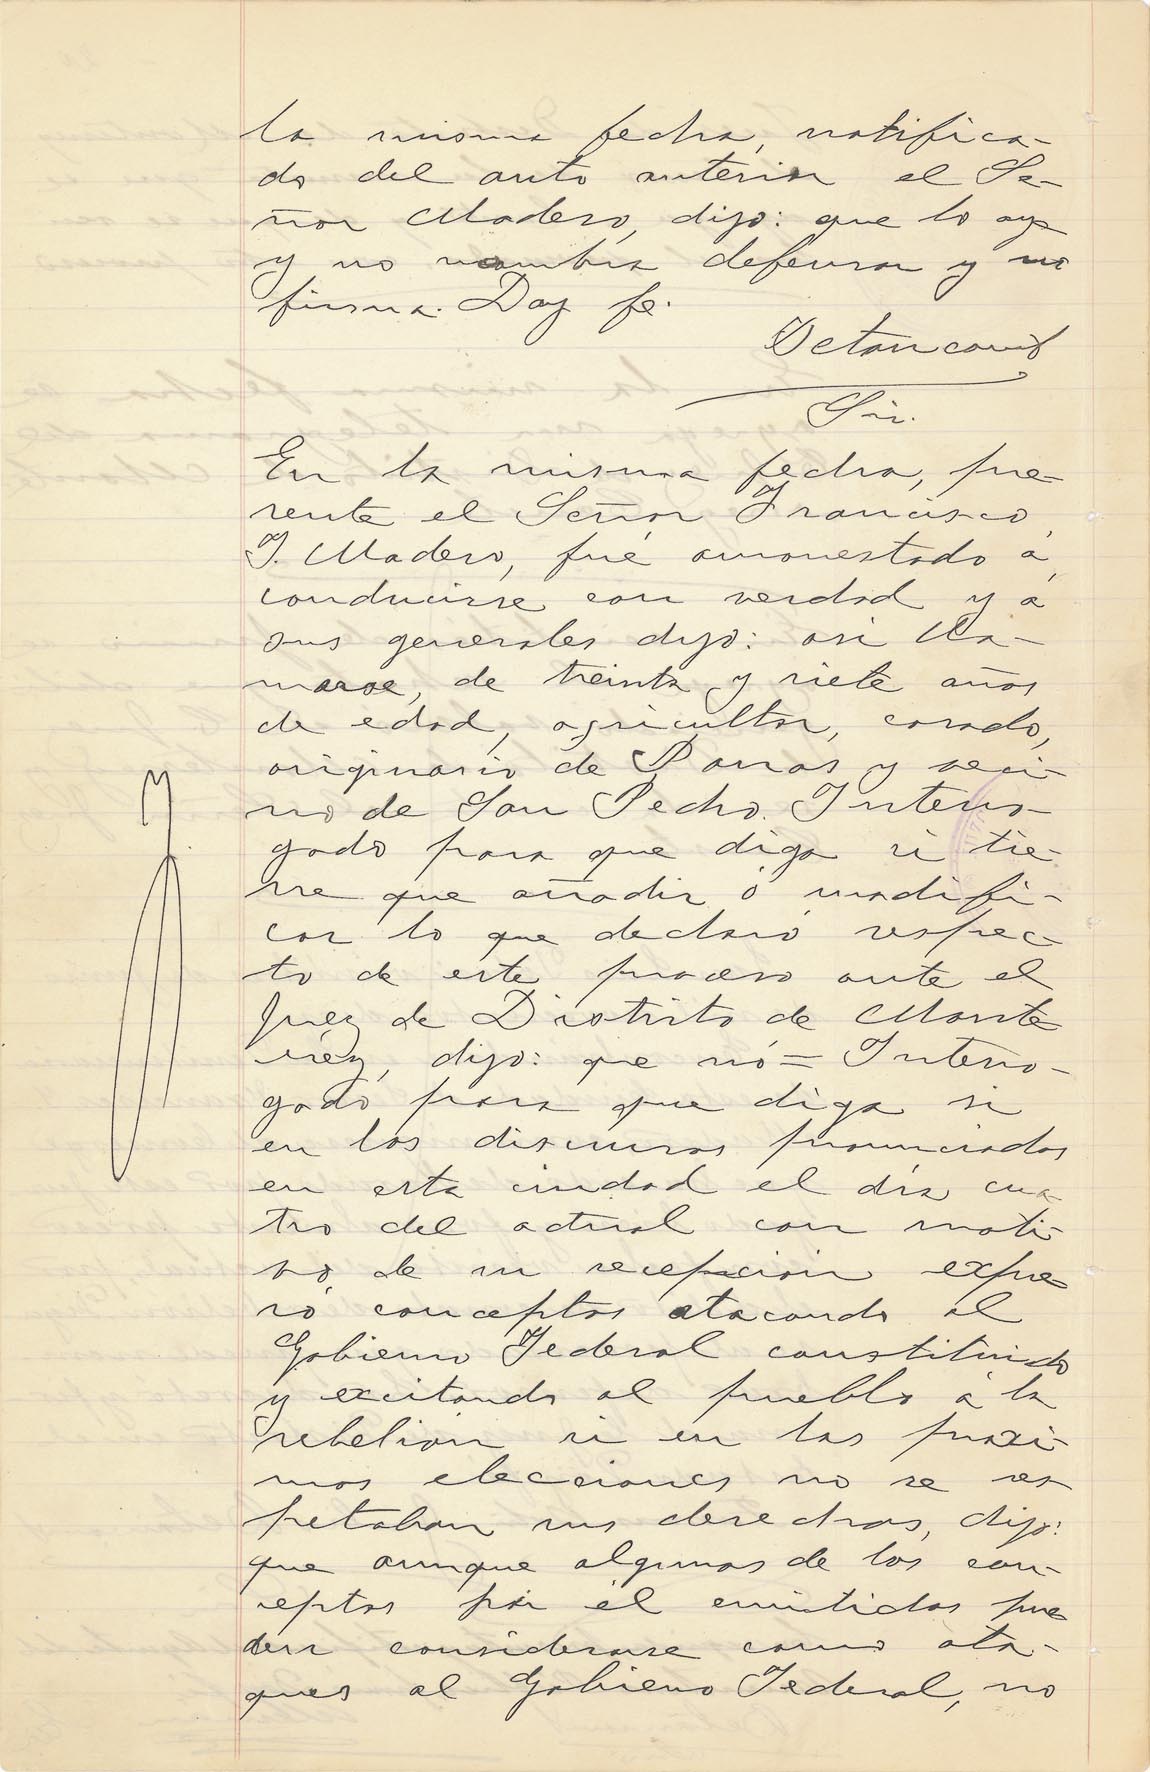 la misma fecha, notifica-
do del auto anterior el Se-
ñor Madero, dijo: que lo oye
y no nombra defensor y no
firma. Doy fe.
Betancourt
Srio.
En la misma fecha, pre-
sente el Señor Francisco
I. Madero, fué amonestado á
conducirse con verdad y á
sus generales dijo: asi lla-
marse, de treinta y siete años
de edad, agricultor, casado,
originario de Parras y veci-
no de San Pedro. Interro-
gado para que diga si tie-
ne que añadir ó modifi-
car lo que declaró respec-
to de este proceso ante el
Juez de Distrito de Monte
rrey, dijo: que nó= Interro-
gado para que diga si
en los discursos pronunciados
en esta ciudad el día cua-
tro del actual con moti-
vo de su recepcion expre
só conceptos atacando al
Gobierno Federal constituido
y excitando al pueblo á la
rebelion si en las proxi-
mas elecciones no se res-
petaban sus derechos, dijo:
que aunque algunos de los con-
ceptos por él emitidos pue
den considerarse como ata-
ques al Gobierno Federal, no